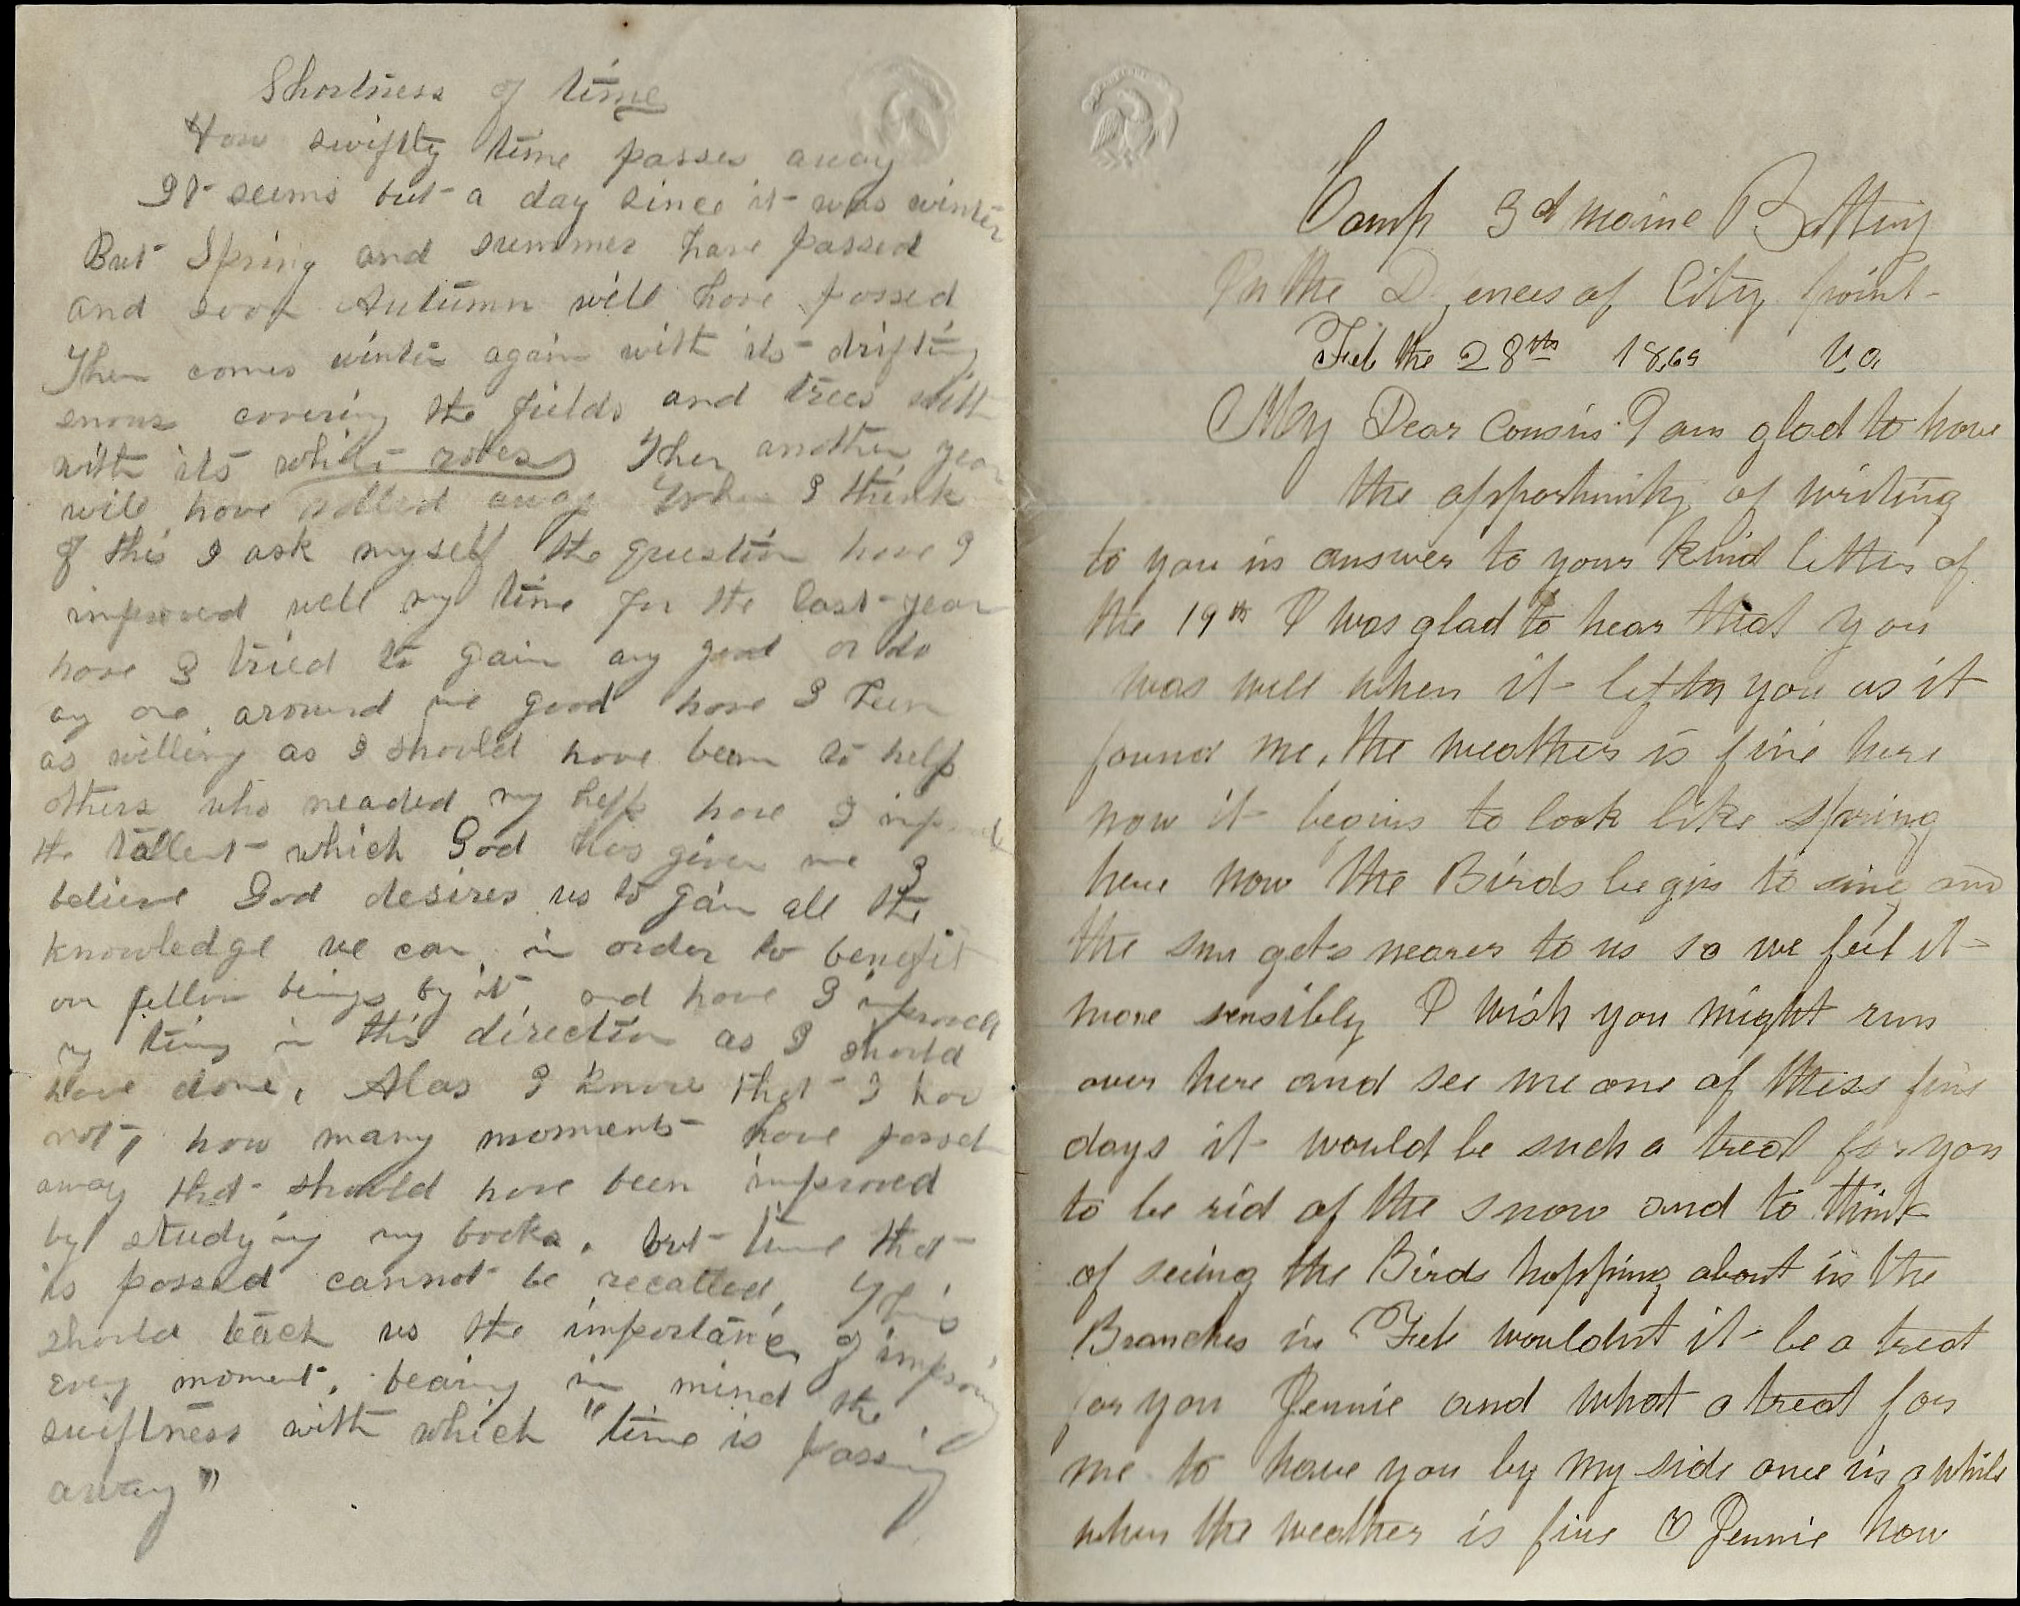 Shortness of time
How swiftly time passes away
It seems but a day since it was winter
But Spring and summer have passed
and soon Autumn will have passed
Then comes winter again with its drifting
snows covering the fields and trees with
with its white robes Then another year
will have rolled away When I think
of this I ask myself the question have I
improved well my time for the last year
have I tried to gain any good or do
any one around me good have I been
as willing as I should have been to help
others who neaded my help have I
the tallent which God has given me I
believe God desires us to gain all the
knowledge we can in order to benefit
our fellow beings by it, and have I improved
my time in this direction as I should
have done, Alas I know that I have
not, how many moments have passed
away that should have been improved
by studying my books. but time that
is passed cannot be recalled, This
should teach us the importance of improving
every moment, bearing in mind the
swiftness with which "time is passing
away"
Camp 3d maine Battery
In the D ences of City point
Feb the 28th 1865 Va
My Dear Cousin I am glad to have
the opportunity of writing
to you in answer to your kind letter of
the 19th I was glad to hear that you
was well when it left you as it
found me, the weather is fine here
now it begins to look like Spring
here now the Birds begin to sing and
the sun gets nearer to us so we feel it
more sensibly I wish you might run
over here and see me one of these fine
days it would be such a treat for you
to be rid of the snow and to think
of seeing the Birds hopping about in the
Branches in Feb wouldnt it be a treat
for you Jennie and what a treat for
me to have you by my side once in a while
when the weather is fine O Jennie how